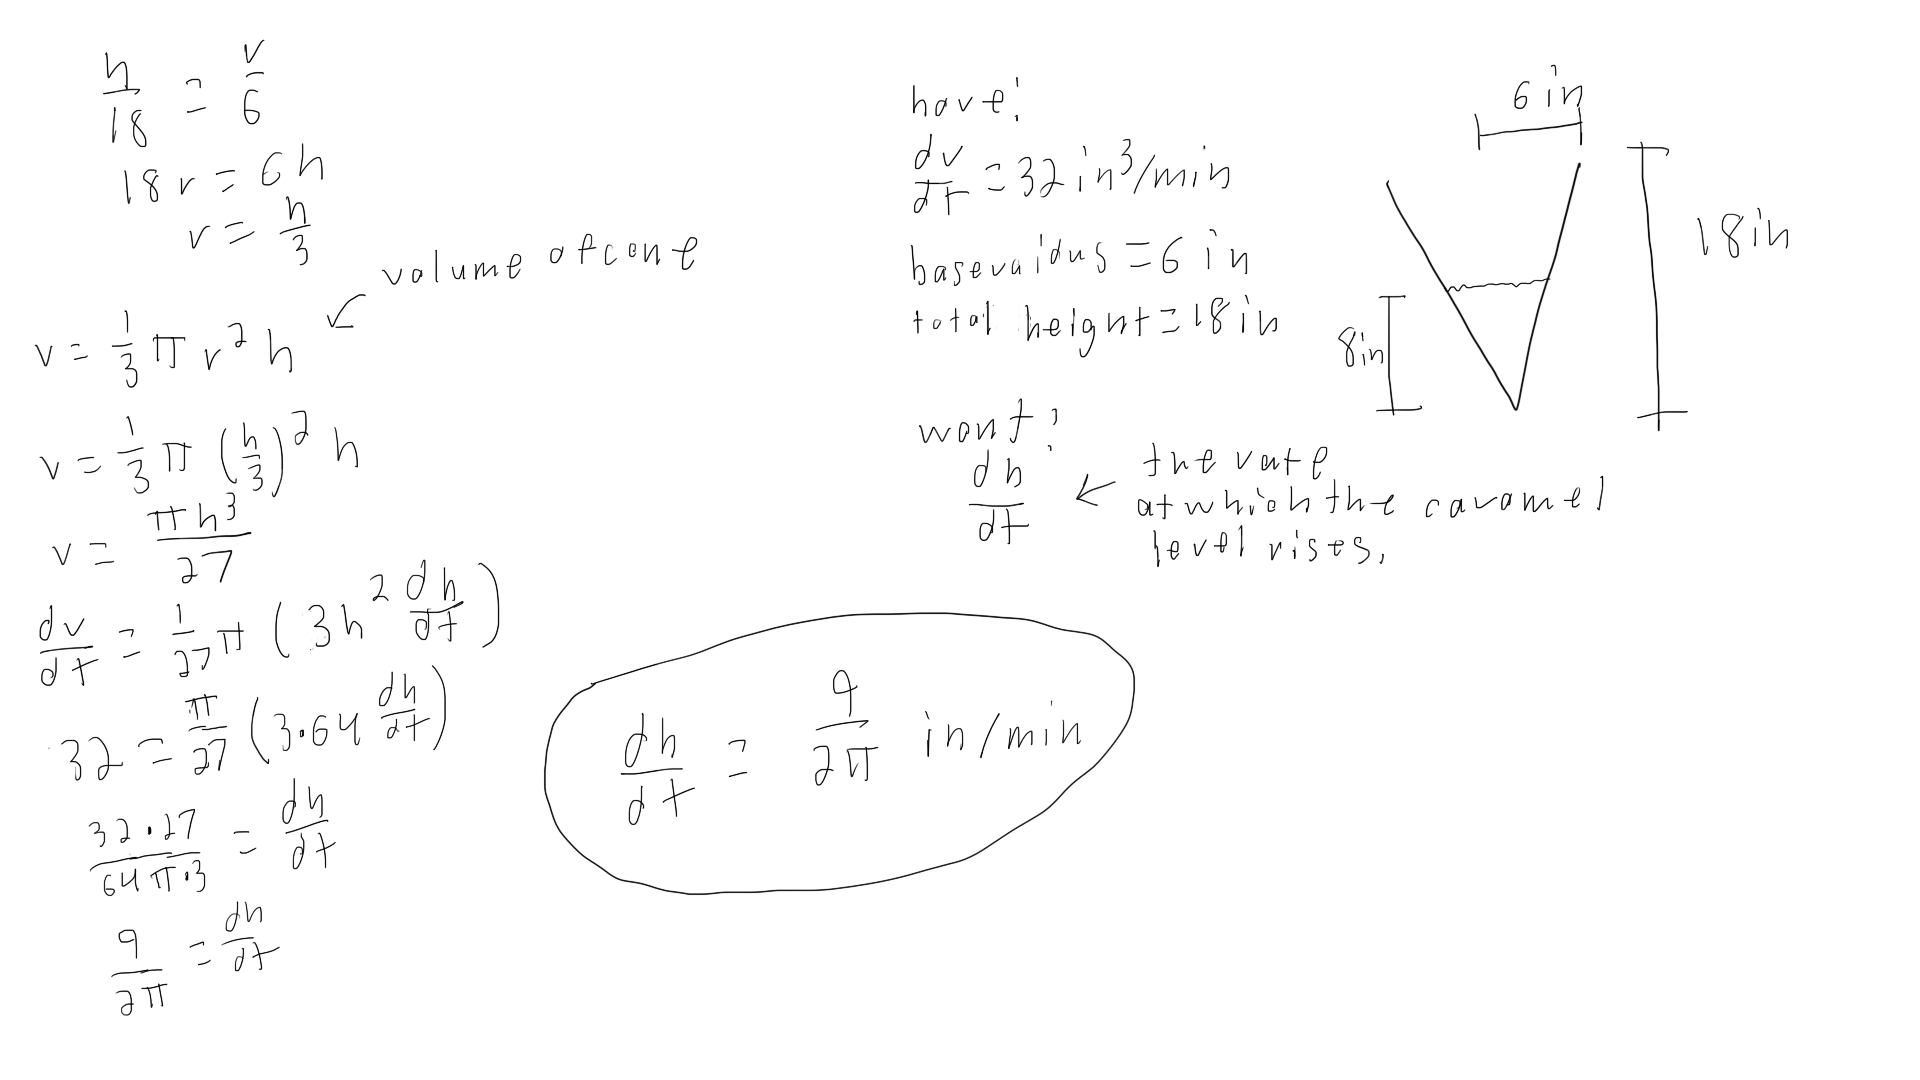 h/18 = r/6
18r = 6h
r = h/3
volume of cone
v = 1/3 π r² h
v = 1/3 π (h/3)² h
v = πh³/27
dv/dt = 1/27 π (3h² dh/dt)
32 = π/27 (3·64 dh/dt)
32·27/64π·3 = dh/dt
9/2π = dh/dt
have:
dv/dt = 32 in³/min
base raidus = 6 in
total height = 18 in
want:
dh/dt
the rate
at which the caramel
level rises.
dh/dt = 9/2π in/min
6 in
18 in
8 in